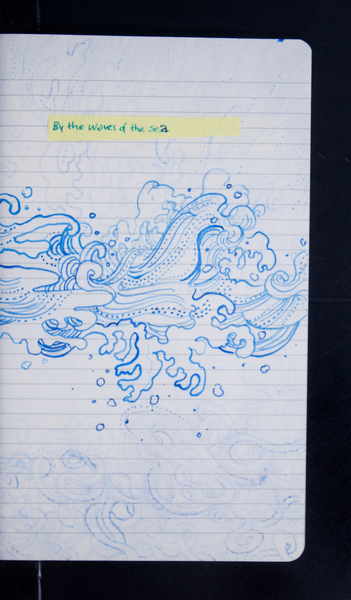 By the waves of the sea